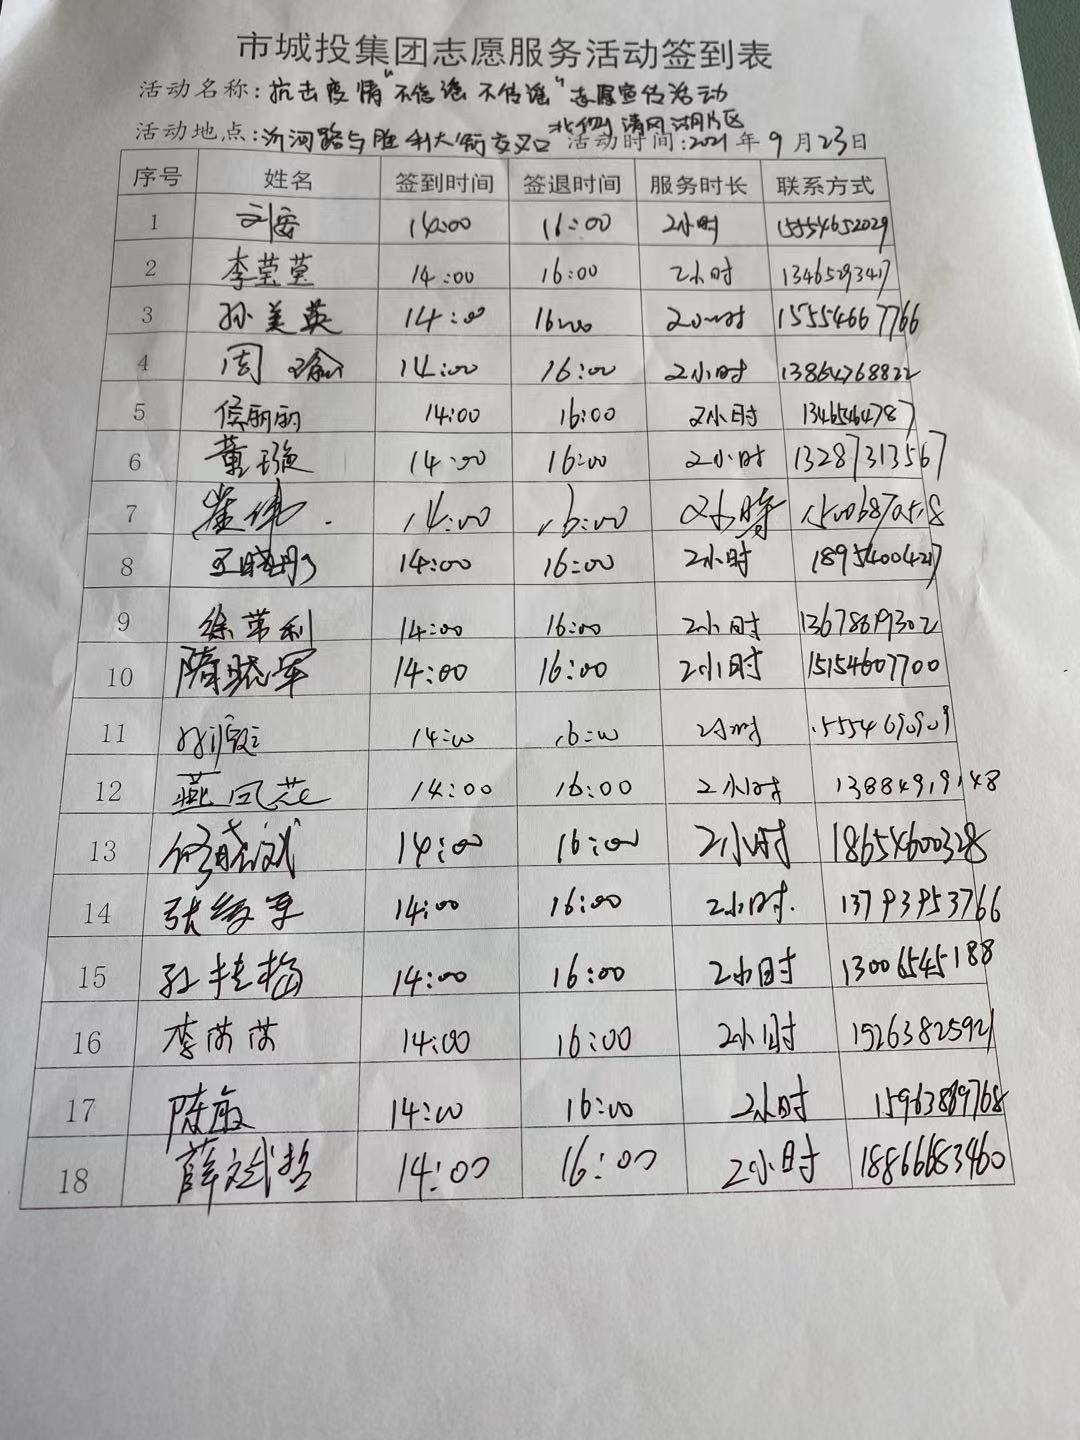 市城投集团志愿服务活动签到表
活动名称:抗击疫情"不信谣 不传谣"志愿宣传活动
北侧 清风湖片区
活动地点:沂河路与胜利大街交叉口 活动时间:2021年9月23日
序号 姓名 签到时间 签退时间 服务时长 联系方式
1 刘安 14:00 16:00 2小时 15554652029
2 李莹莹 14:00 16:00 2小时 13465293417
3 孙美英 14:00 16:00 2小时 15554667766
4 周瑜 14:00 16:00 2小时 13864768822
5 侯丽丽 14:00 16:00 2小时 13465464787
6 董璇 14:00 16:00 2小时 13287313567
7 崔伟 14:00 16:00 2小时 15006870518
8 王晓彤 14:00 16:00 2小时 18954004217
9 徐荣利 14:00 16:00 2小时 13678619302
10 隋晓军 14:00 16:00 2小时 15154607700
11 14:00 16:00 2小时 15554690909
12 燕风芝 14:00 16:00 2小时 13884919148
13 修晓斌 14:00 16:00 2小时 18654600328
14 张 军 14:00 16:00 2小时 13793953766
15 孙桂梅 14:00 16:00 2小时 13006545188
16 李苗苗 14:00 16:00 2小时 15263825921
17 陈敏 14:00 16:00 2小时 15963889768
18 薛文哲 14:00 16:00 2小时 18866683460